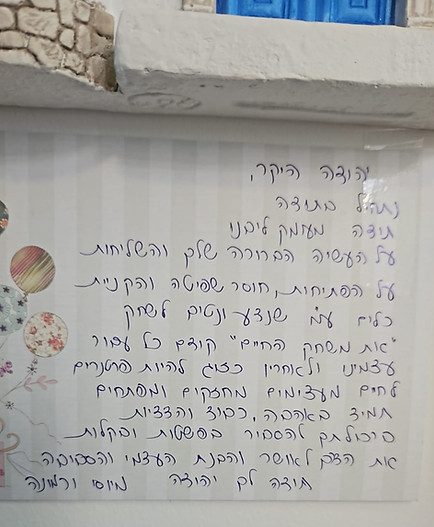 יהודה היקר,
נתחיל בתודה
תודה מעומק ליבנו
על העשיה הברורה שלך והשליחות
על הפתיחות, חוסר שפיטה והקניית
כלים עם שנדע ונטים לשחק
"את משחק החיים" קודם כל עבור
עצמינו ולאחרין כזוג להיות פרטנרים
לחיים מעצימים מחזקים ומפתחים
תמיד באהבה, כבוד והדדיות
סיכולתך להסביר בפשטות ובקלות
את הדרך לאושר והבנת העצמי והסביבה
תודה לך יהודה מיוסי ורמונה